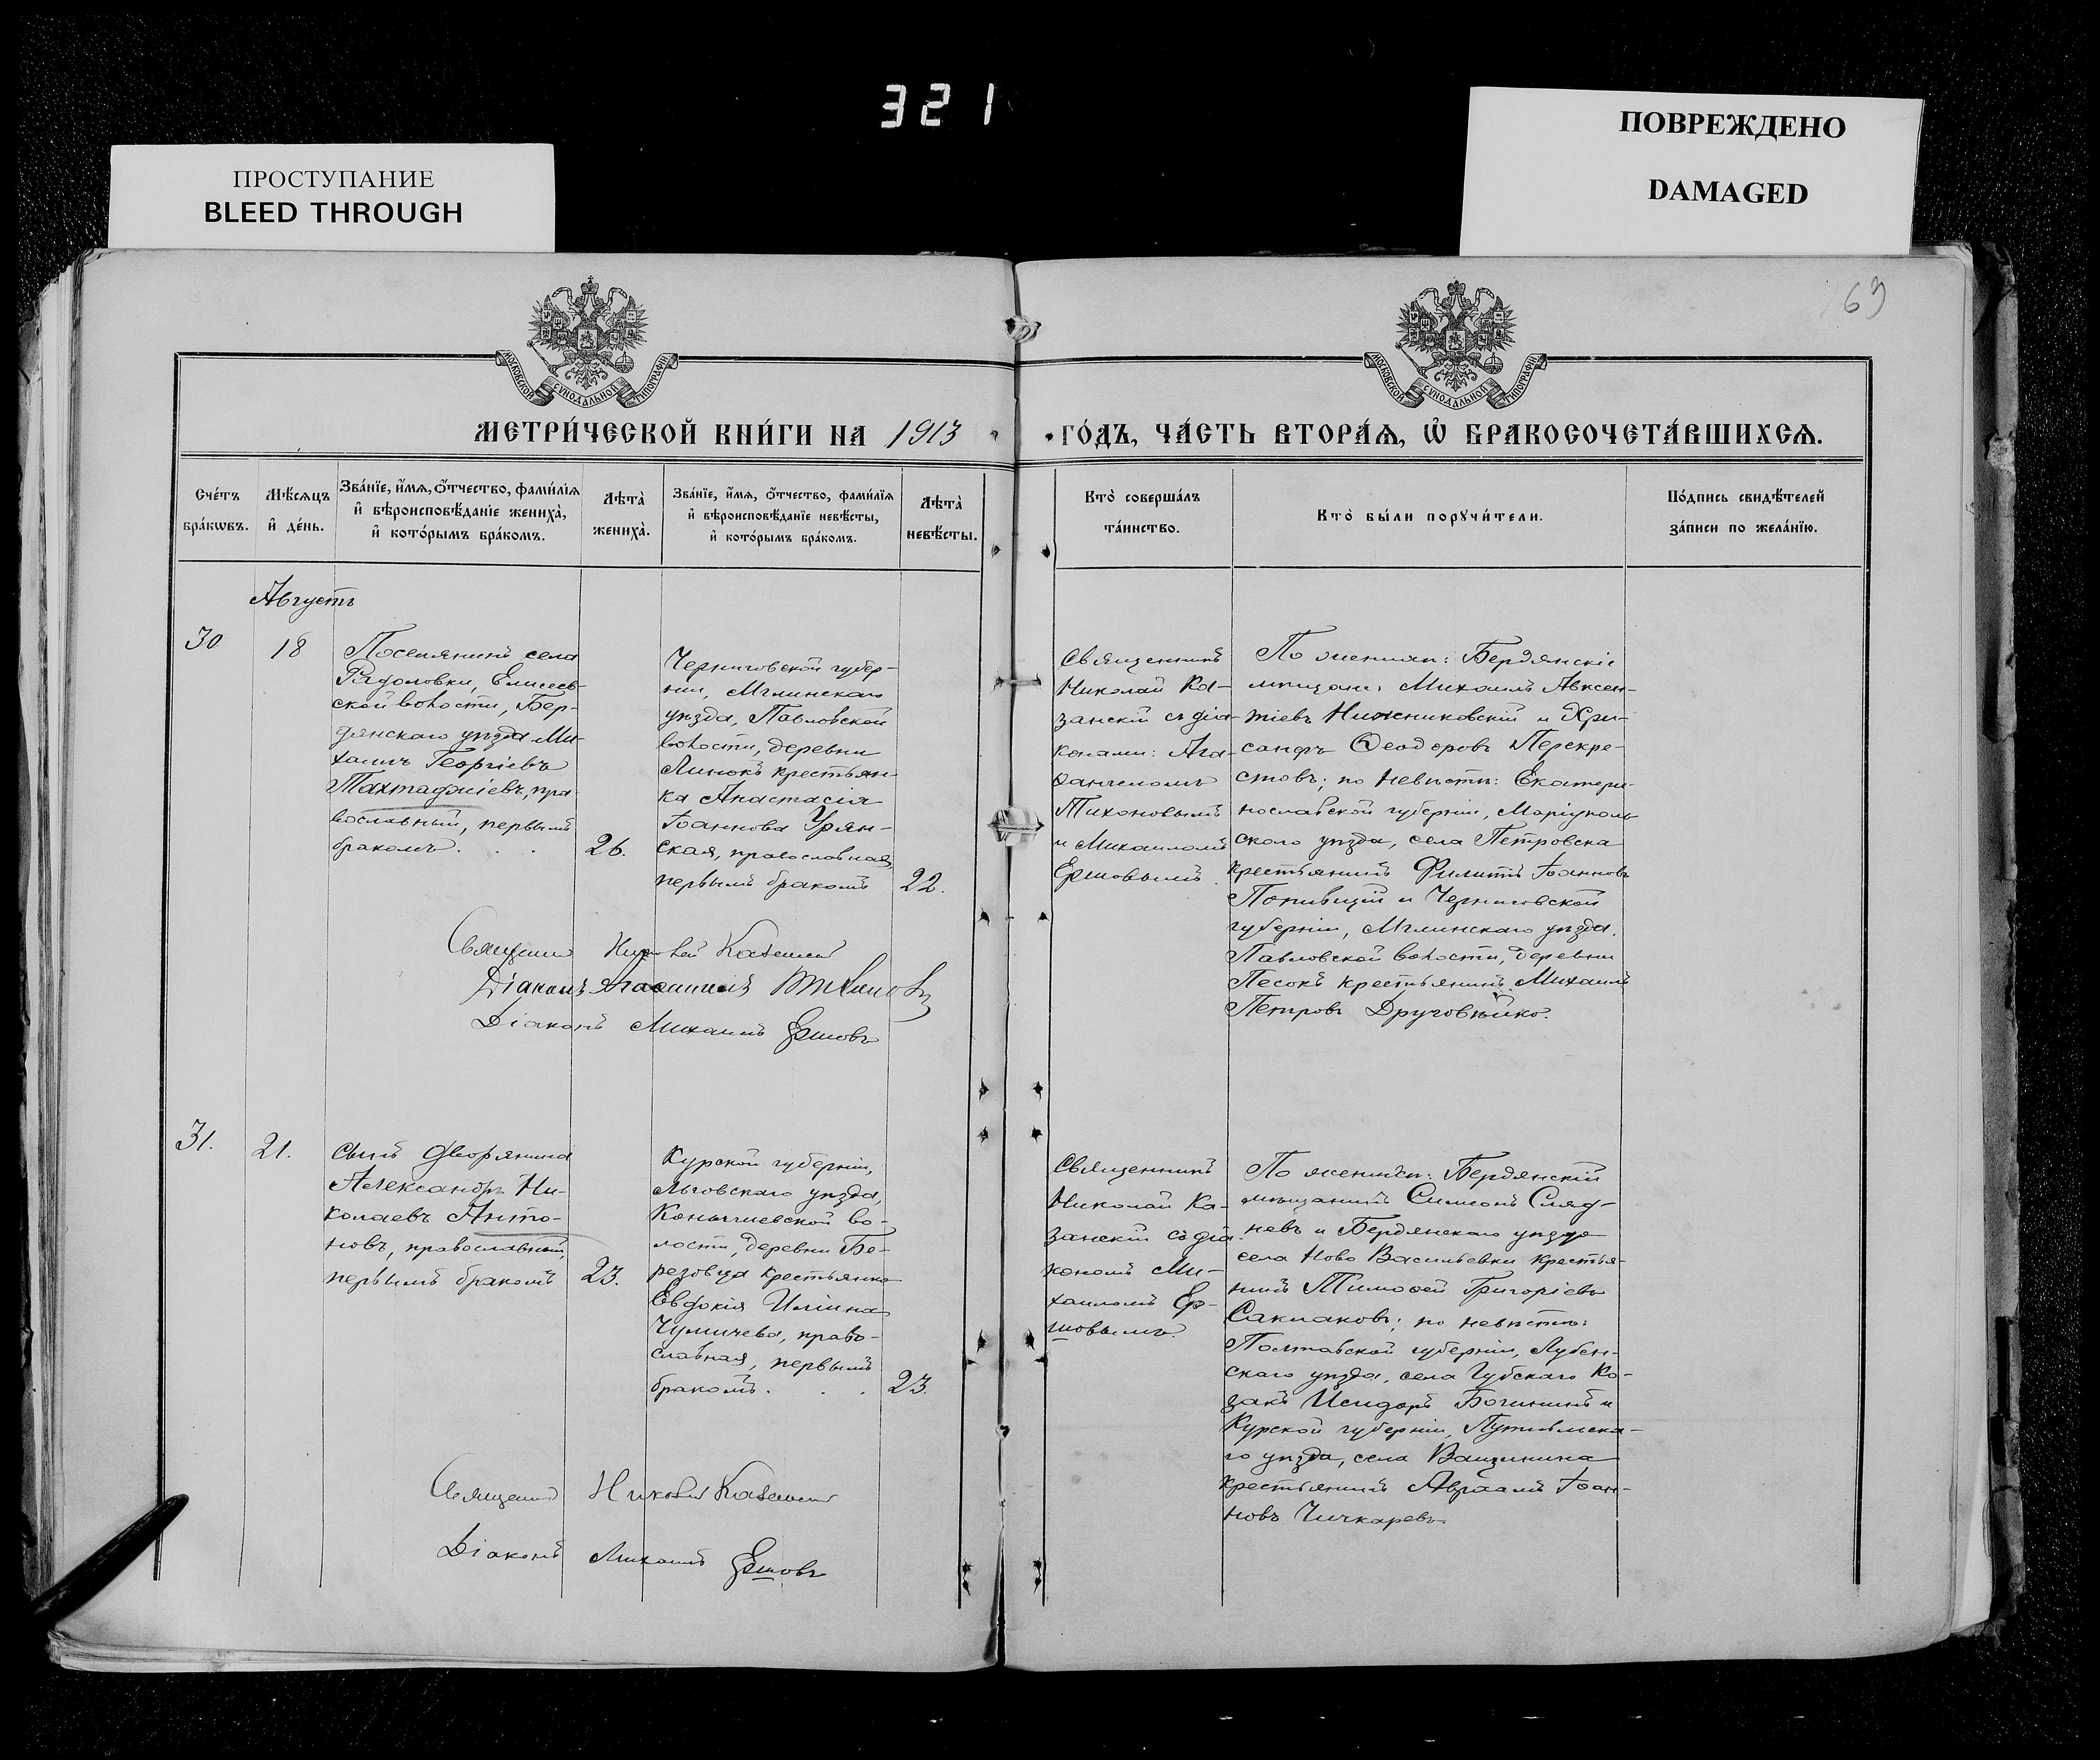 321
ПРОСТУПАНИЕ
BLEED THROUGH
ПОВРЕЖДЕНО
DAMAGED
63
МОСКОВСКОЙ СУНОДАЛЬНОЙ ТИПОГРАФІИ
МОСКОВСКОЙ СУНОДАЛЬНОЙ ТИПОГРАФІИ
МЕТРИ́ЧЕСКОЙ КНИ́ГИ НА 1913
ГО́ДЪ, ЧА́СТЬ ВТОРА́Ѧ, Ѡ҆ БРАКОСОЧЕТА́ВШИХСѦ.
Сче́тъ
бра́кѡвъ.
Мѣ́сѧцъ
и҆ де́нь.
Зва́нїе, и҆́мѧ, ѻ҆́тчество, фами́лїѧ
и҆ вѣроисповѣ́данїе жениха̀,
и҆ кото́рымъ бра́комъ.
Лѣта̀
жениха̀.
Зва́нїе, и҆́мѧ, ѻ҆́тчество, фами́лїѧ
и҆ вѣроисповѣ́данїе невѣ́сты,
и҆ кото́рымъ бра́комъ.
Лѣта̀
невѣ́сты.
Кто̀ соверша́лъ
та́инство.
Кто̀ бы́ли порꙋчи́тели.
По́дпись свидѣ́телей
за́писи по жела́нїю.
Августъ
30
18
Поселянинъ села
Радоловки, Елисеев-
ской волости, Бер-
дянскаго уѣзда Ми-
хаилъ Георгіевъ
Тахтаджіевъ, пра-
вославный, первымъ
бракомъ . . .
26.
Черниговской губер-
ніи, Мглинскаго
уѣзда, Павловской
волости, деревни
крестьян-
ка Анастасія
Іоаннова Урян-
ская, православная,
первымъ бракомъ
22.
Священникъ
Николай Ка-
занскій съ діа-
конами: Ага-
ѳангеломъ
Тихоновымъ
и Михаиломъ
Ершовымъ.
По женихѣ: Бердянскіе
мѣщане: Михаилъ Авксен-
тіевъ Нижниковскій и Хри-
санфъ Ѳеодоровъ Перекре-
стовъ; по невѣстѣ: Екатери-
нославской губерніи, Маріуполь-
скаго уѣзда, села Петровска
крестьянинъ Филиппъ Іоанновъ
и Черниговской
губерніи, Мглинскаго уѣзда.
Павловской волости, деревни
Песокъ крестьянинъ Михаилъ
Петровъ Друговейко.
Священникъ Николай Казанскій
Діаконъ Агаѳангелъ Тихоновъ
Діаконъ Михаилъ Ершовъ
31.
21.
Сынъ дворянина
Александръ Ни-
колаевъ Анто-
новъ, православный,
первымъ бракомъ
23.
Курской губерніи,
Льговскаго уѣзда,
во-
лости, деревни Бе-
резовца крестьянка
Евдокія Иліина
Чумичева, право-
славная, первымъ
бракомъ . . .
23.
Священникъ
Николай Ка-
занскій съ діа-
кономъ Ми-
хаиломъ Ер-
шовымъ.
По женихѣ: Бердянскій
мѣщанинъ Симеонъ Сляд-
невъ и Бердянскаго уѣзда
села Ново Васильевки крестья-
нинъ Тимоѳей Григоріевъ
Саклаковъ; по невѣстѣ:
Полтавской губерніи, Лубен-
скаго уѣзда, села Губскаго Ко-
закъ Исидоръ и
Курской губерніи, Путивльска-
го уѣзда, села
крестьянинъ Авраамъ Іоан-
новъ Чичкаревъ.
Священникъ Николай Казанскій
Діаконъ Михаилъ Ершовъ